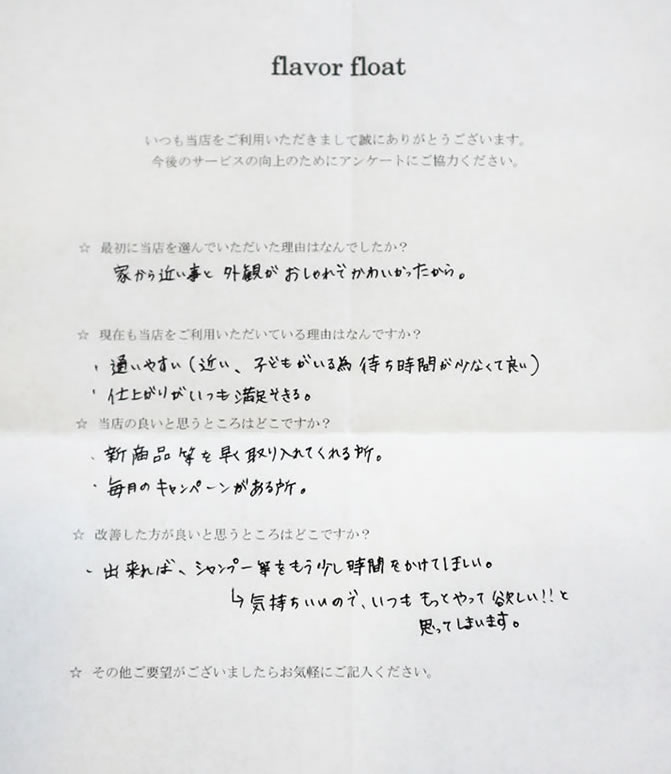 flavor float
いつも当店をご利用いただきまして誠にありがとうございます。
今後のサービスの向上のためにアンケートにご協力ください。
☆ 最初に当店を選んでいただいた理由はなんでしたか？
家から近い事と 外観が おしゃれでかわいかったから。
☆ 現在も当店をご利用いただいている理由はなんですか？
・通いやすい(近い、子どもがいる為 待ち時間が少なくて良い)
・仕上がりがいつも満足できる。
☆ 当店の良いと思うところはどこですか？
・新商品等を早く取り入れてくれる所。
・毎月のキャンペーンがある所。
☆ 改善した方が良いと思うところはどこですか？
・出来れば、シャンプー等をもう少し時間をかけてほしい。
↳気持ちいいので、いつももっとやって欲しい!!と
思ってしまいます。
☆ その他ご要望がございましたらお気軽にご記入ください。